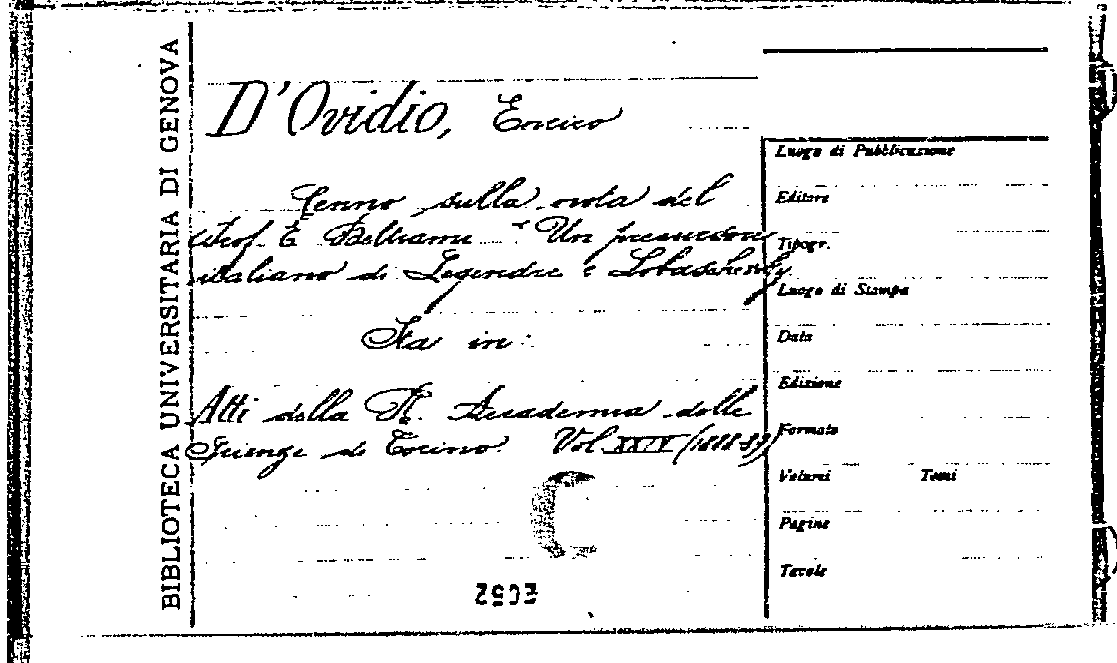 BIBLIOTECA UNIVERSITARIA DI GENOVA
D'Ovidio, Enrico
Cenno sulla nota del
Prof. E. Beltrami "Un precursore
italiano di Legendre e Lobatschewsky
Sta in:
Atti della R. Accademia delle
Scienze di Torino. Vol. XXIV (1888-89)
C
Luogo di Pubblicazione
Editore
Tipogr.
Luogo di Stampa
Data
Edizione
Formato
Volumi Tomi
Pagine
Tavole